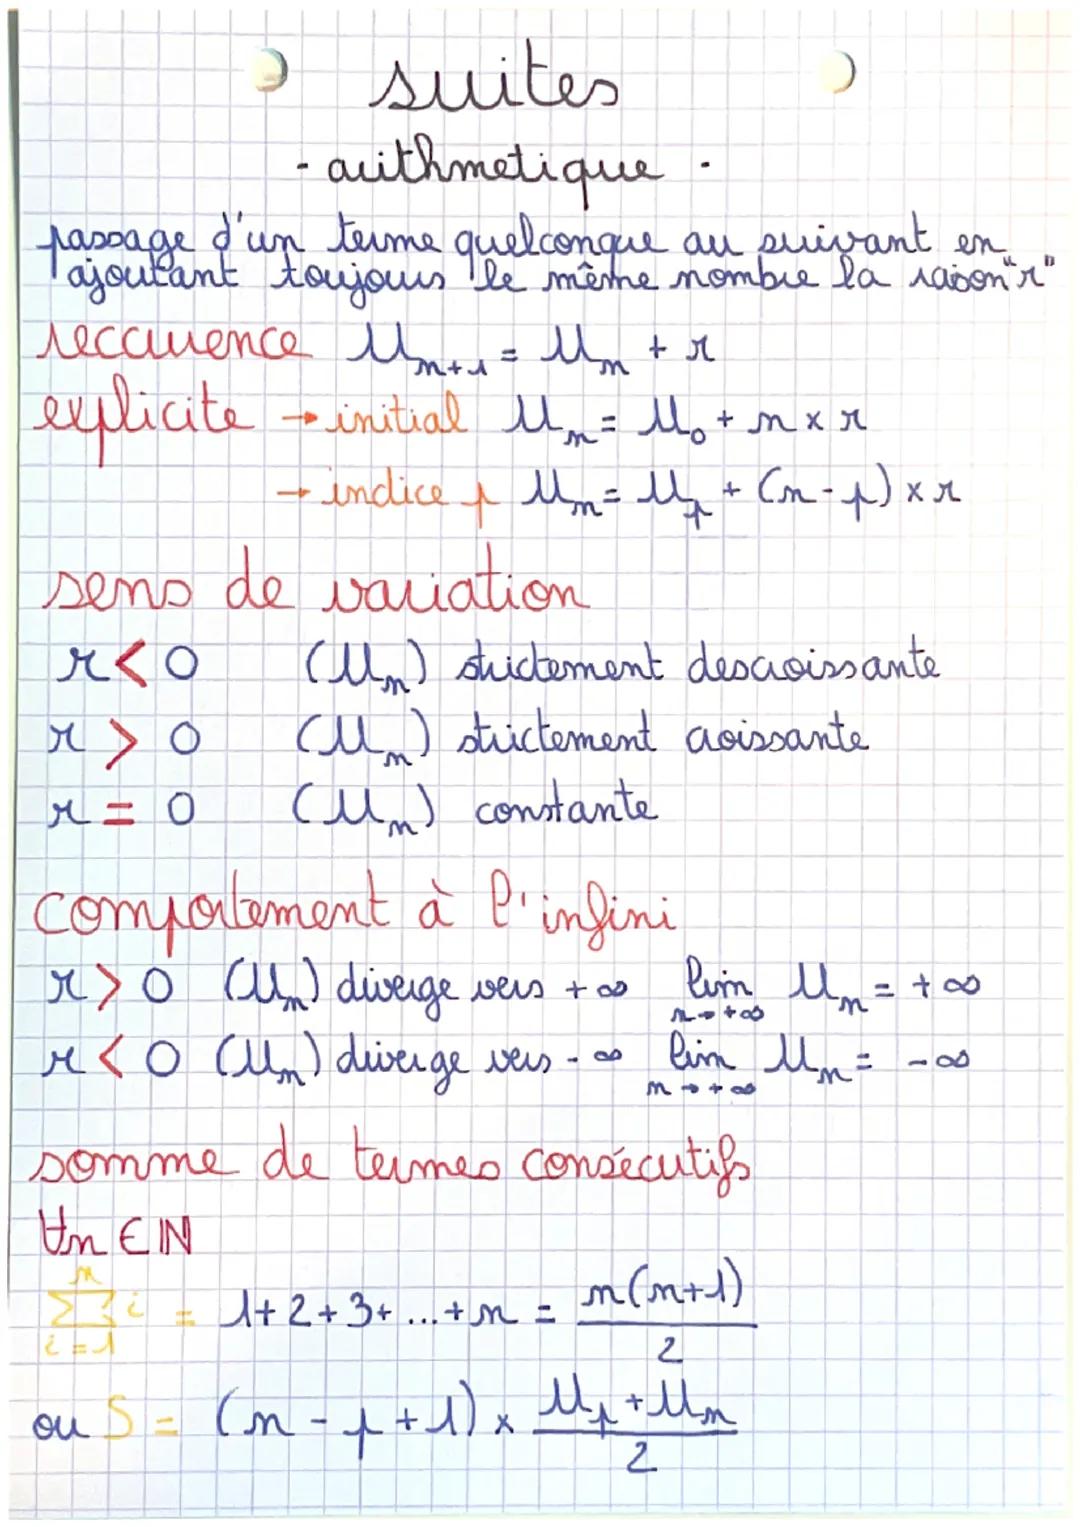 suites
- arithmetique -
passage d'un terme quelconque au suivant en
ajoutant toujours le même nombre la raison "r"
reccurence U_{n+1} = U_n + r
explicite → initial U_n = U_0 + n × r
→ indice p U_n = U_p + (n-p) × r
sens de variation
r < 0 (U_n) strictement descroissante
r > 0 (U_n) strictement croissante
r = 0 (U_n) constante
comportement à l'infini
r > 0 (U_n) diverge vers +∞ lim_{n→+∞} U_n = +∞
r < 0 (U_n) diverge vers -∞ lim_{n→+∞} U_n = -∞
somme de termes consécutifs
∀n ∈ ℕ
∑_{i=1}^{n} i = 1+2+3+...+n = n(n+1)/2
ou S = (n-p+1) × (U_p+U_n)/2